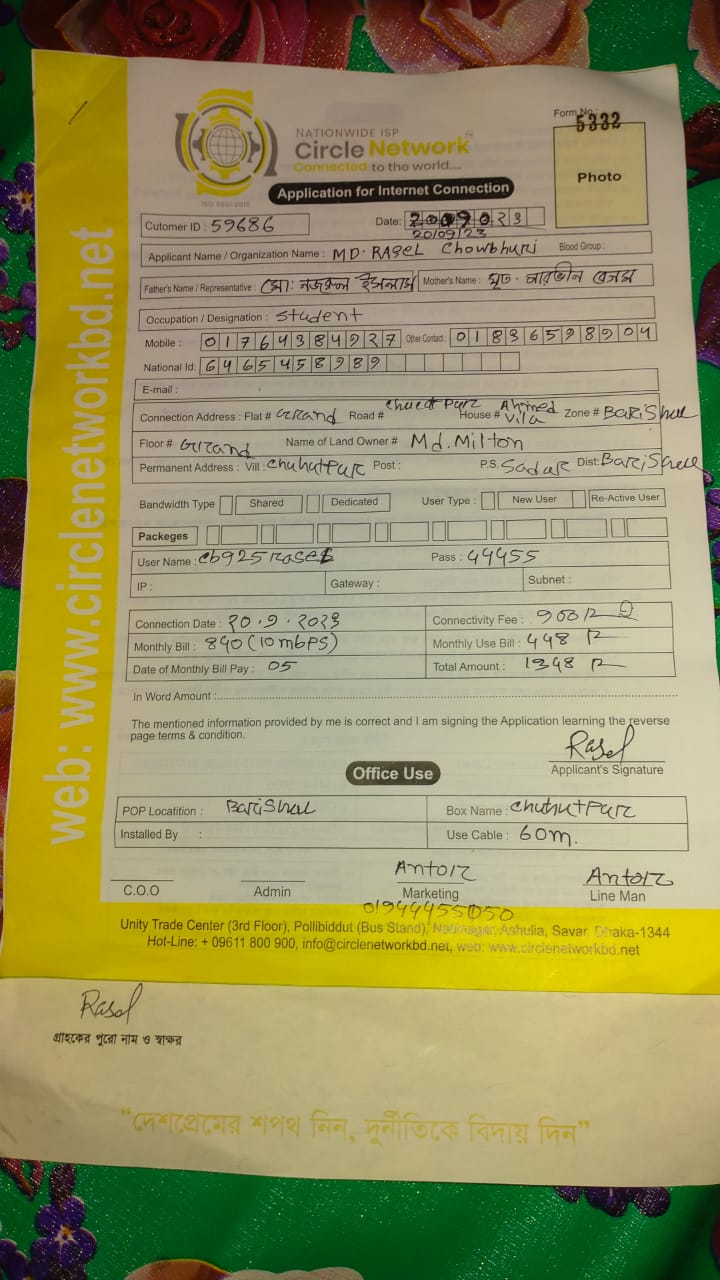 Form No.:
5332
NATIONWIDE ISP
Circle Network
Connected to the world....
ISO 9001:2015
Photo
Application for Internet Connection
Cutomer ID : 59686 Date: 20092023
20/09/23
Applicant Name / Organization Name : MD. RASEL Chowbhuri Blood Group :
Father's Name / Representative : মো: নজরুল ইসলাম Mother's Name : মৃত. পারভীন বেগম
Occupation / Designation : Student
Mobile : 01764384927 Other Contact : 01836598904
National Id: 6465458989
E-mail :
Connection Address : Flat # Grand Road # House # Ahmed Vila Zone # BariShal
Floor # Grand Name of Land Owner # Md. Milton
Permanent Address : Vill : Chuhutpur Post : P.S. Sadar Dist: BariShal
Bandwidth Type Shared Dedicated User Type : New User Re-Active User
Packeges
User Name : cb925rasel Pass : 44455
IP : Gateway : Subnet :
Connection Date : 20.9.2023 Connectivity Fee : 900
Monthly Bill : 890 (10mbps) Monthly Use Bill : 448
Date of Monthly Bill Pay : 05 Total Amount : 1348
In Word Amount :
The mentioned information provided by me is correct and I am signing the Application learning the reverse
page terms & condition.
Rasel
Applicant's Signature
Office Use
POP Locatition : BariShal Box Name : Chuhutpur
Installed By : Use Cable : 60m.
Antor Antor
C.O.O Admin Marketing Line Man
01944455050
Unity Trade Center (3rd Floor), Pollibiddut (Bus Stand), Nabinagar, Ashulia, Savar, Dhaka-1344
Hot-Line: + 09611 800 900, info@circlenetworkbd.net, web: www.circlenetworkbd.net
web: www.circlenetworkbd.net
Rasel
গ্রাহকের পুরো নাম ও স্বাক্ষর
“দেশপ্রেমের শপথ নিন, দুর্নীতিকে বিদায় দিন”